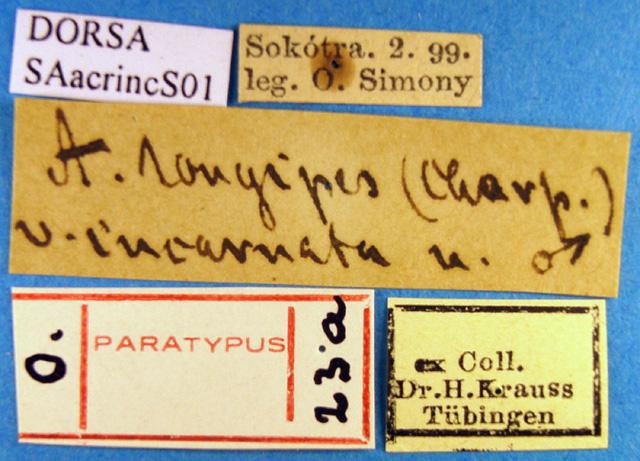 DORSA
SAacrincS01
Sokótra. 2. 99.
leg. O. Simony
A. longipes (Charp.)
v. incarnata n. ♂
O.
PARATYPUS
23.a
ex Coll.
Dr.H.Krauss
Tübingen